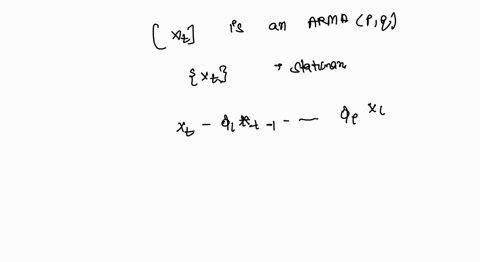 [ Xt] is an ARMA (P, q)
{Xt} → stationary
xt - ϕ1 xt-1 - — ϕp xt